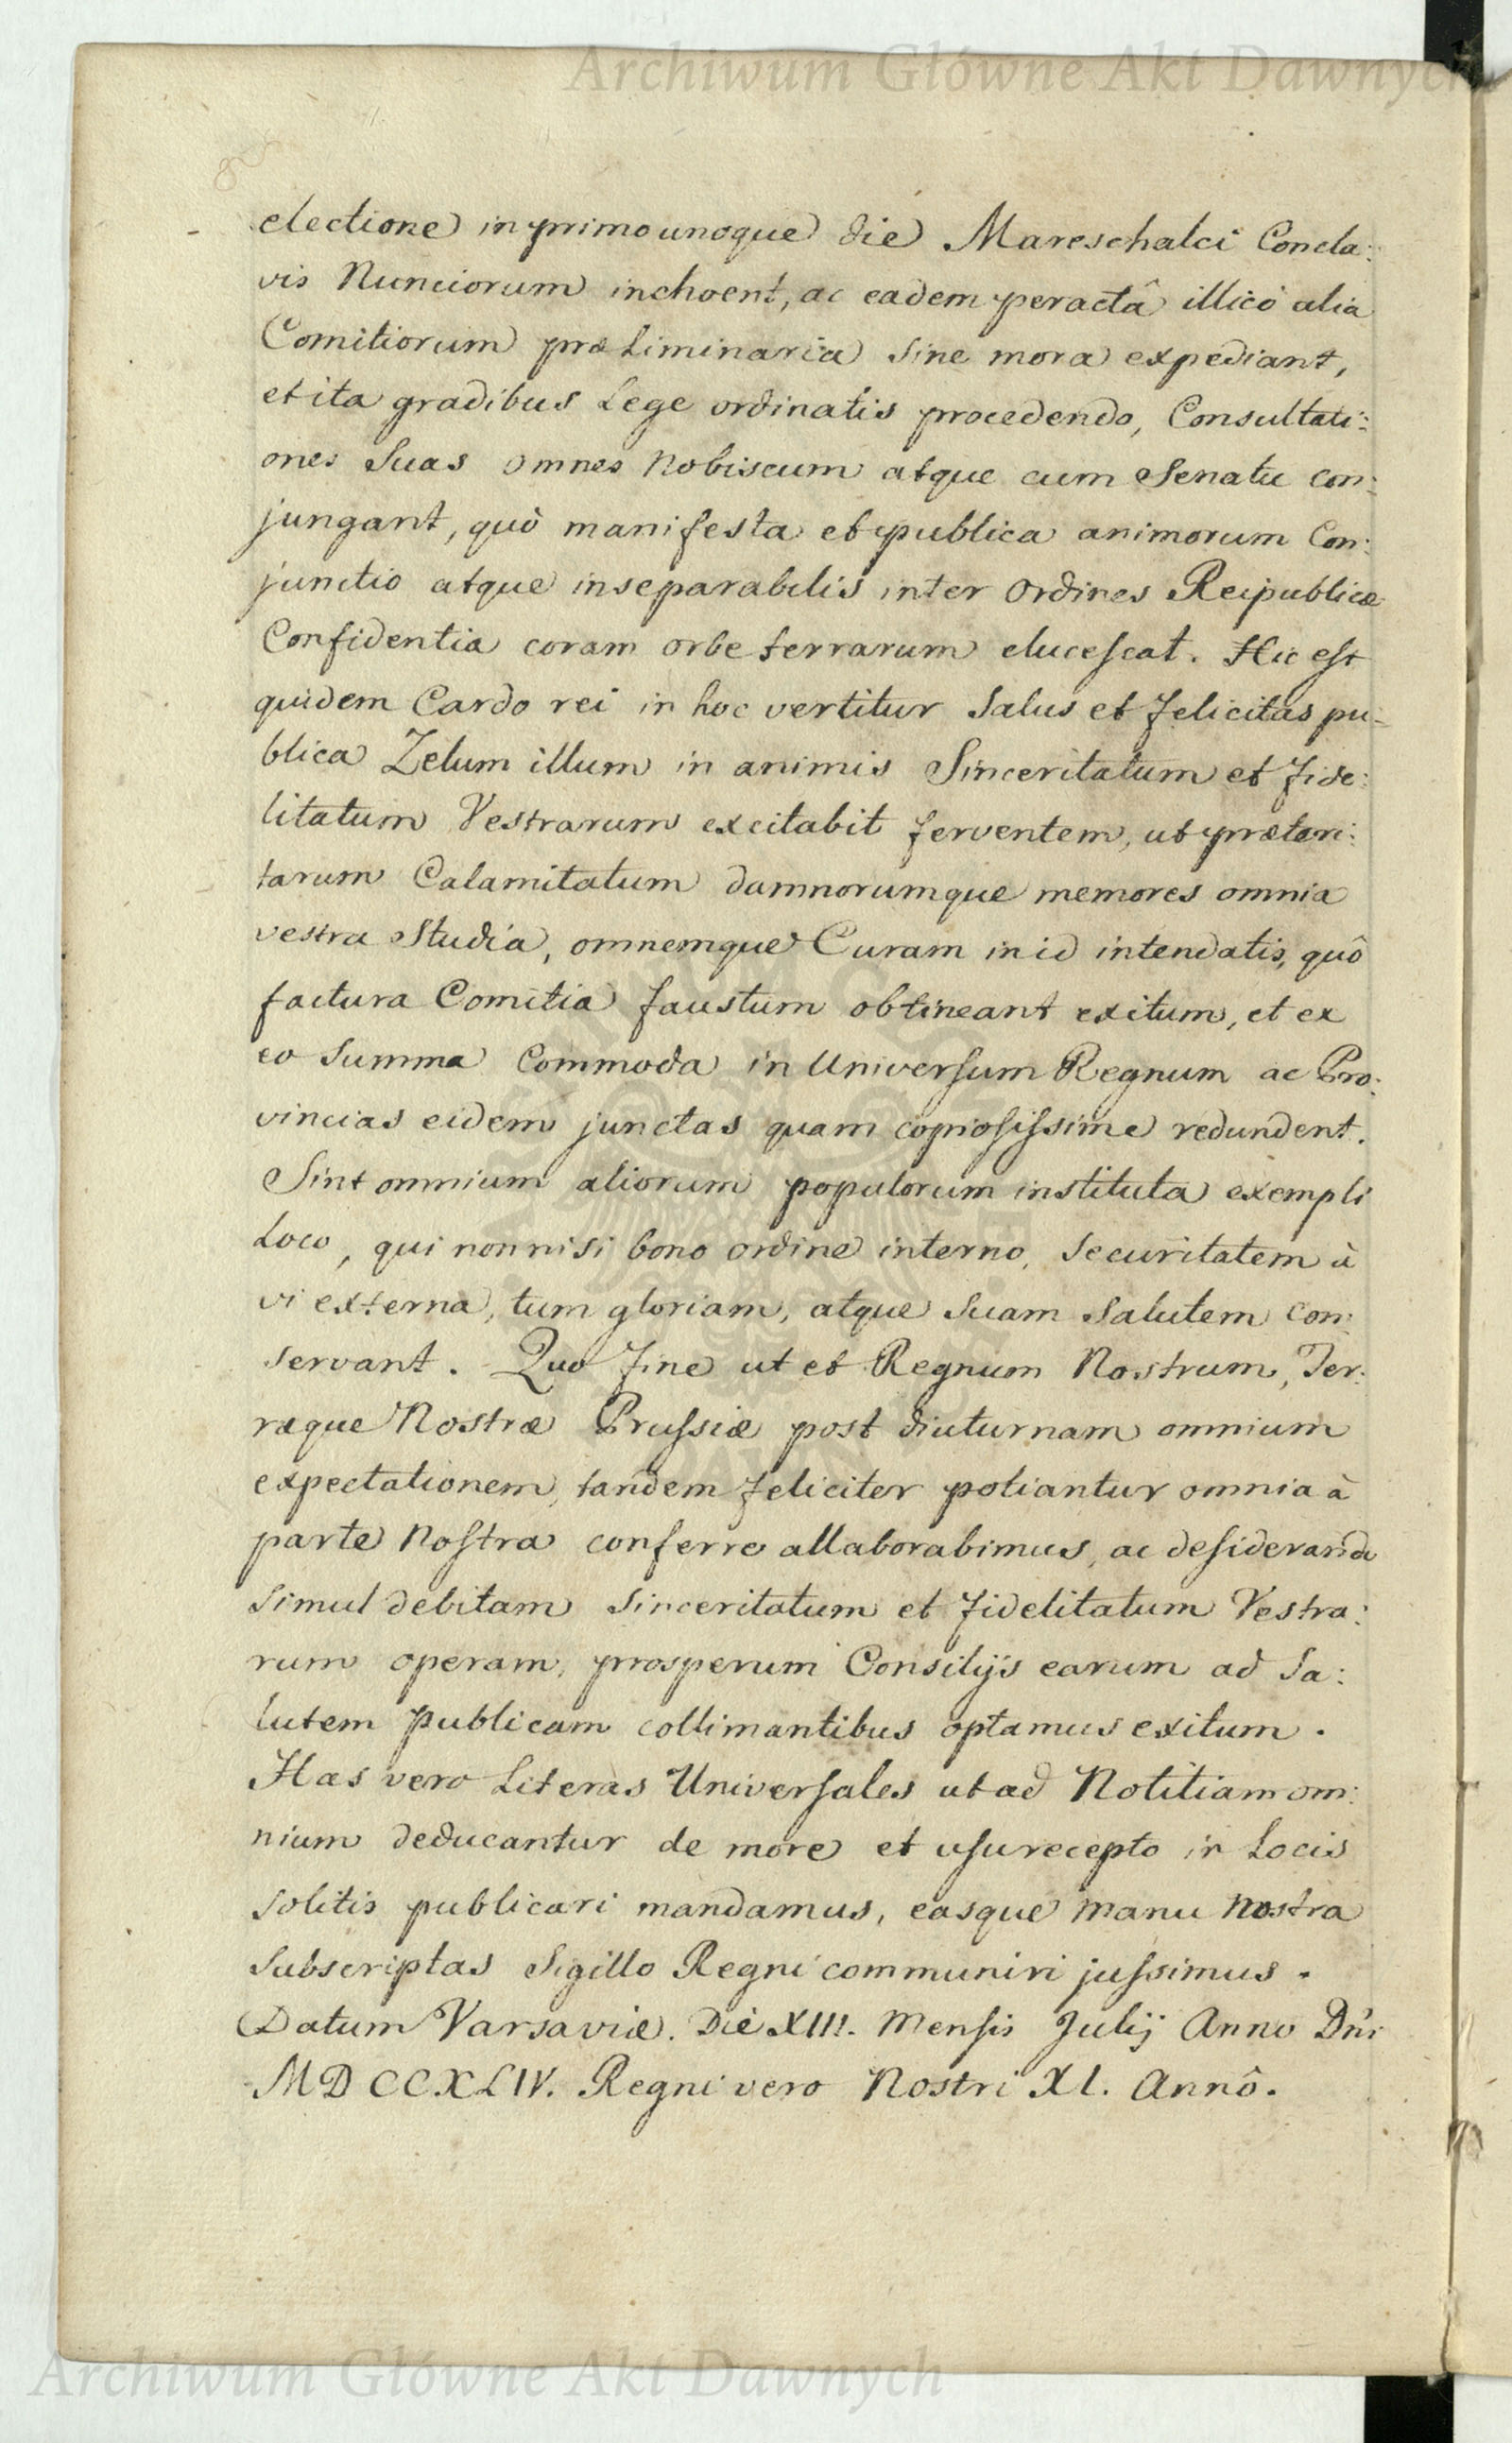 Archiwum Główne Akt Dawnych
8
electione in primo unoque die Mareschalci Concla:
vis Nunciorum inchoent, ac eadem peractâ illicò alia
Comitiorum præliminaria sine mora expediant,
et ita gradibus Lege ordinatis procedendo, Consultati:
ones suas omnes Nobiscum atque cum Senatu con:
jungant, quò manifesta et publica animorum Con:
junctio atque inseparabilis inter Ordines Reipublicæ
Confidentia coram orbe terrarum elucescat. Hic est
quidem Cardo rei in hoc vertitur Salus et felicitas pu:
blica Zelum illum in animis Sinceritatum et fide:
litatum Vestrarum excitabit ferventem, ut præteri:
tarum Calamitatum damnorumque memores omnia
vestra Studia, omnemque Curam in id intendatis, quô
factura Comitia faustum obtineant exitum, et ex
eo summa Commoda in Universum Regnum ac Pro:
vincias eidem junctas quam copiosissime redundent.
Sint omnium aliorum populorum instituta exempli
Loco, qui nonnisi bono ordine interno, securitatem à
vi externa, tum gloriam, atque suam salutem con:
servant. Quo fine ut et Regnum Nostrum, Ter:
ræque Nostræ Prussiæ post diuturnam omnium
expectationem, tandem feliciter potiantur omnia à
parte Nostra conferre allaborabimus, ac desiderando
simul debitam Sinceritatum et fidelitatum Vestra:
rum operam, prosperum Consilijs earum ad Sa:
lutem publicam collimantibus optamus exitum.
Has vero Literas Universales ut ad Notitiam om:
nium deducantur de more et usu recepto in Locis
solitis publicari mandamus, easque manu nostra
subscriptas Sigillo Regni communiri jussimus.
Datum Varsaviæ. Die XIII. Mensis Julij Anno Dni
MDCCXLIV. Regni vero Nostri XI. Annô.
Archiwum Główne Akt Dawnych